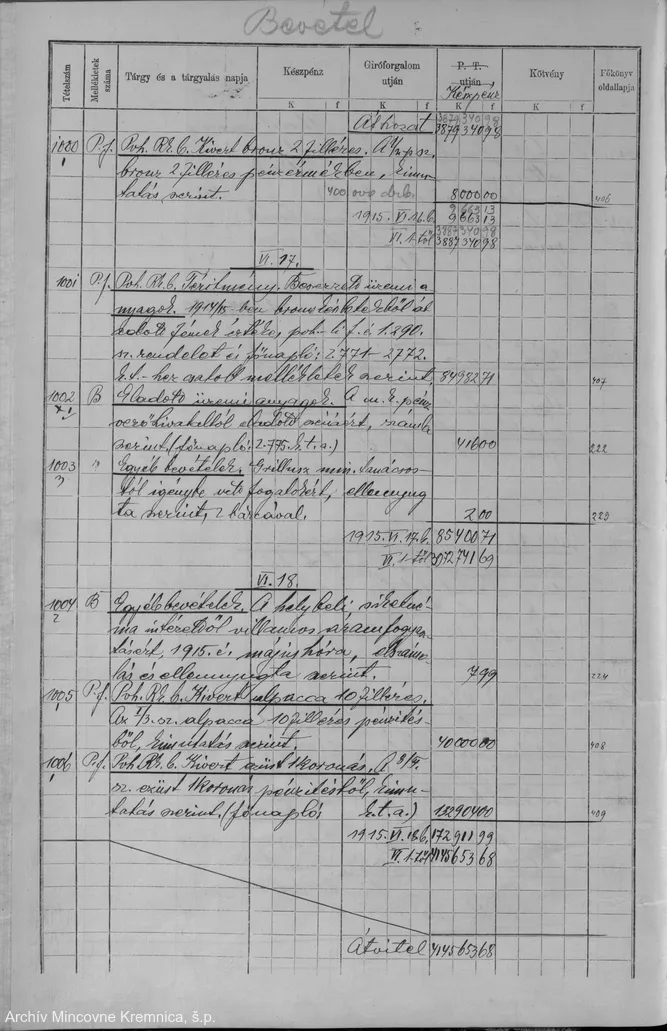 Bevétel
Tételszám
Mellékletek száma
Tárgy és a tárgyalás napja
Készpénz
Giróforgalom útján
P. T. útján
Kötvény
Főkönyv oldallapja
K f K f K f K f
Áthozat 3879 340 98
3879 340 98
1000 P.f. Poh. Rt. C. Kivert bronz 2 filléres.
bronz 2 filléres pénzérmékben, kimu-
tatás szerint. 400 000 drb. 8000 00 406
9663 13
1915. VI. 16. b. 9663 13
3887 340 98
VI. 1-től 3887 340 98
VI. 17.
1001 P.f. Poh. Rt. C. Térítmény. Beszerzett üzemi a
nyagok. 1914/15-ben
fémek értéke, poh. 1.290.
sz. rendelet és főnapló: 2.771-2772.
k.t.-hez csatolt mellékletek szerint, 84982 71 407
1002 B Eladott üzemi anyagok. A m. k. pénz
verőhivataltól eladott szénáért, számla
szerint (főnapló: 2.775. k.t.a.) 416 00 222
1003 " Egyéb bevételek. min. tanácsos-
tól igénybe vett fogatokért, ellennyug
ta szerint, 2 bárcával. 2 00 223
1915. VI. 17. b. 85400 71
VI. 1-től 3972741 69
VI. 18.
1004 B Egyéb bevételek. A helybeli
villamos áramfogyasz-
tásért, 1915. é. május hóra, elszámo-
lás és ellennyugta szerint. 7 99 224
1005 P.f. Poh. Rt. C. Kivert alpacca 10 filléres.
Az I/3. sz. alpacca 10 filléres pénzítés
ből, kimutatás szerint. 40000 00 408
1006 P.f. Poh. Rt. C. Kivert ezüst 1 koronás.
sz. ezüst 1 koronás pénzítésből, kimu-
tatás szerint. (főnapló: k.t.a.) 132904 00 409
1915. VI. 18. b. 172911 99
VI. 1-től 4145653 68
Átvitel 4145653 68
Archív Mincovne Kremnica, š.p.